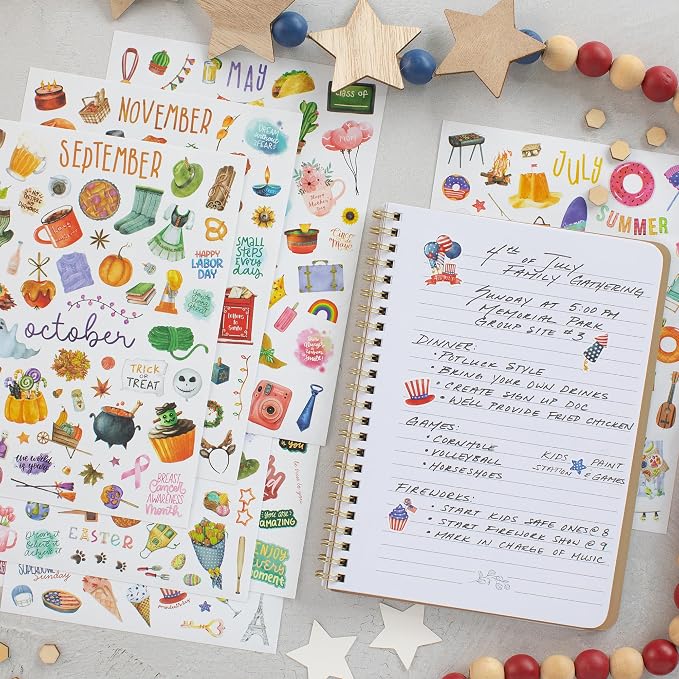 MAY
class of
NOVEMBER
SEPTEMBER
HAPPY
LABOR
DAY
SMALL
STEPS
EVERY
DAY
Letters
to
SANTA
october
TRICK
OR
TREAT
BREAST
CANCER
AWARENESS
MONTH
EASTER
SUPERBOWL
Sunday
YOU ARE
AMAZING
ENJOY
Every
moment
JULY
SUMMER
4th of July
Family Gathering
Sunday at 5:00 pm
Memorial Park
Group Site #3
Dinner:
• Potluck Style
• Bring your own drinks
• Create sign up doc
• We'll provide fried chicken
Games:
• Cornhole
• Volleyball
• Horseshoes
Kids Paint
Station & Games
Fireworks:
• Start kids safe ones @ 8
• Start firework show @ 9
• Mark in charge of music